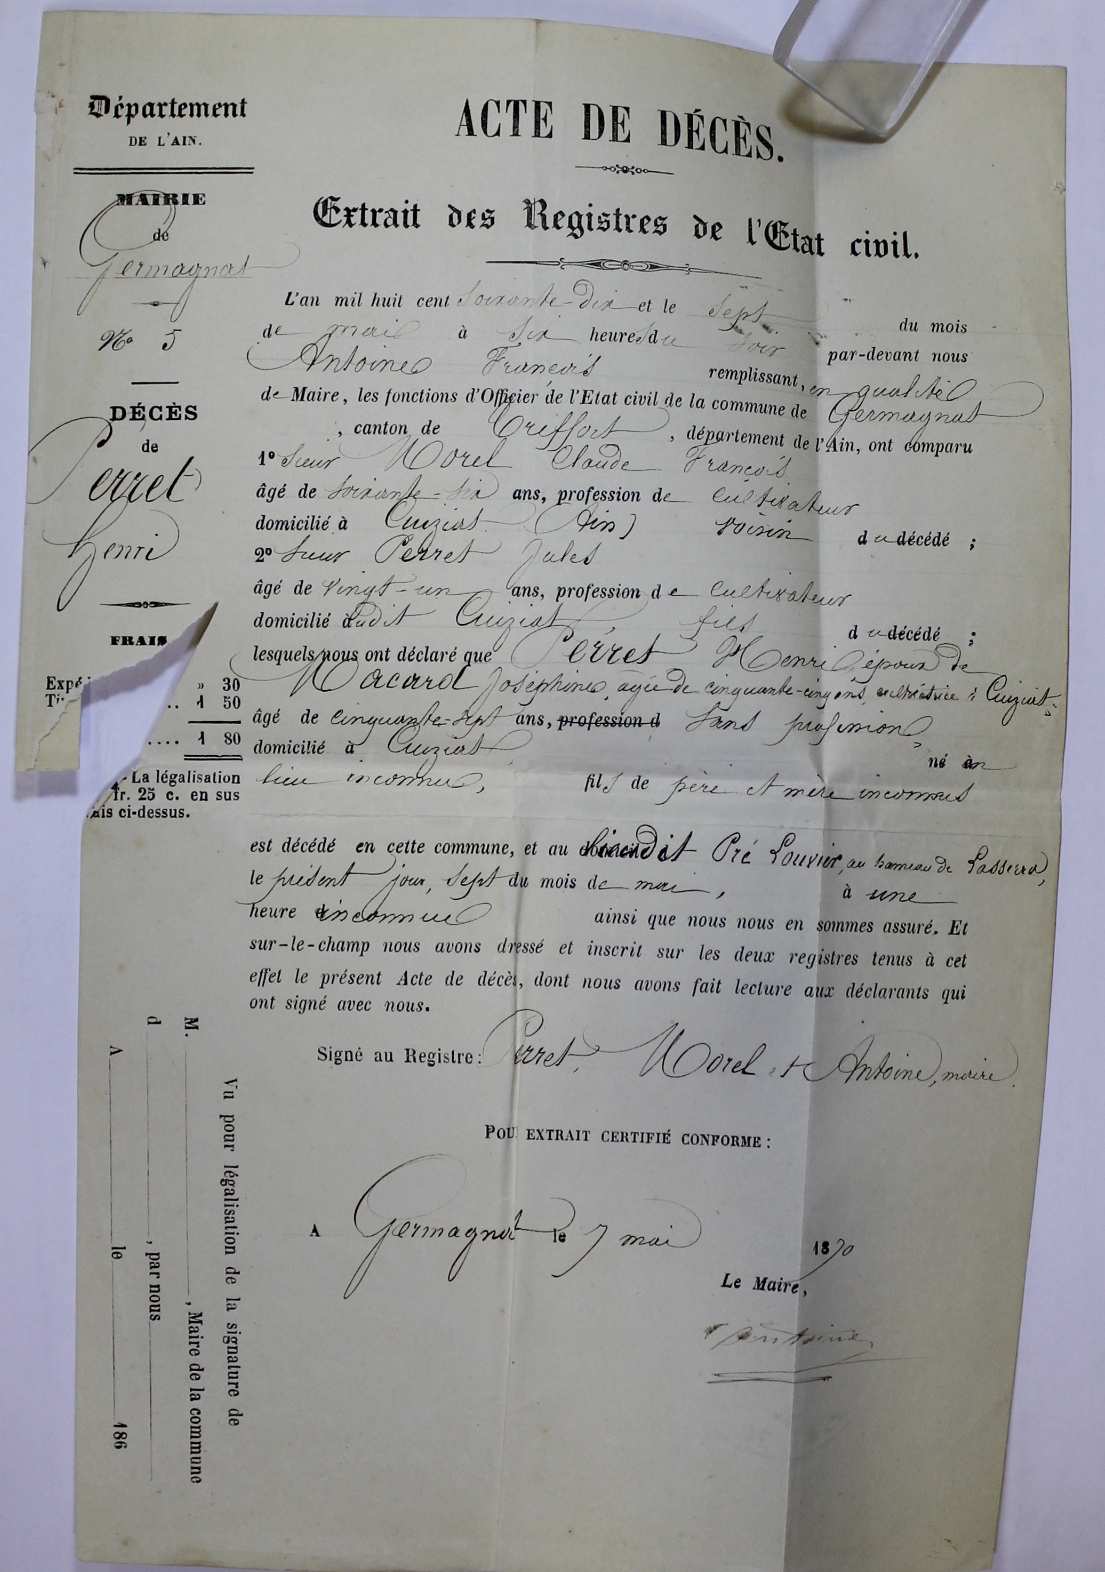 Département
DE L'AIN.
MAIRIE
de
Germagnat
No 5
DÉCÈS
de
Perret
Henri
FRAIS
Expé
» 30
.. 1 50
.... 1 80
La légalisation
fr. 25 c. en sus
ais ci-dessus.
ACTE DE DÉCÈS.
Extrait des Registres de l'Etat civil.
L'an mil huit cent soixante-dix et le sept du mois
de mai à six heures du soir par-devant nous
Antoine François remplissant, en qualité
de Maire, les fonctions d'Officier de l'Etat civil de la commune de Germagnat
, canton de Treffort, département de l'Ain, ont comparu
1º Sieur Morel Claude François
âgé de soixante-six ans, profession de cultivateur
domicilié à Cuiziat (Ain) voisin du décédé ;
2º Sieur Perret Jules
âgé de vingt-un ans, profession de cultivateur
domicilié audit Cuiziat, fils du décédé ;
lesquels nous ont déclaré que Perret Henri époux de
Macard Joséphine, agée de cinquante-cinq ans, cultivatrice à Cuiziat,
âgé de cinquante-sept ans, profession d sans profession,
domicilié à Cuiziat, né en
lieu inconnu, fils de père et mère inconnus
est décédé en cette commune, et au lieudit Pré Louvier, au hameau de Lasserra,
le présent jour, sept du mois de mai, à une
heure inconnue ainsi que nous nous en sommes assuré. Et
sur-le-champ nous avons dressé et inscrit sur les deux registres tenus à cet
effet le présent Acte de décès, dont nous avons fait lecture aux déclarants qui
ont signé avec nous.
Signé au Registre : Perret, Morel et Antoine, maire.
POU EXTRAIT CERTIFIÉ CONFORME :
A Germagnat le 7 mai 1870
Le Maire,
Antoine
Vu pour légalisation de la signature de
M. , Maire de la commune
d , par nous
A le 186